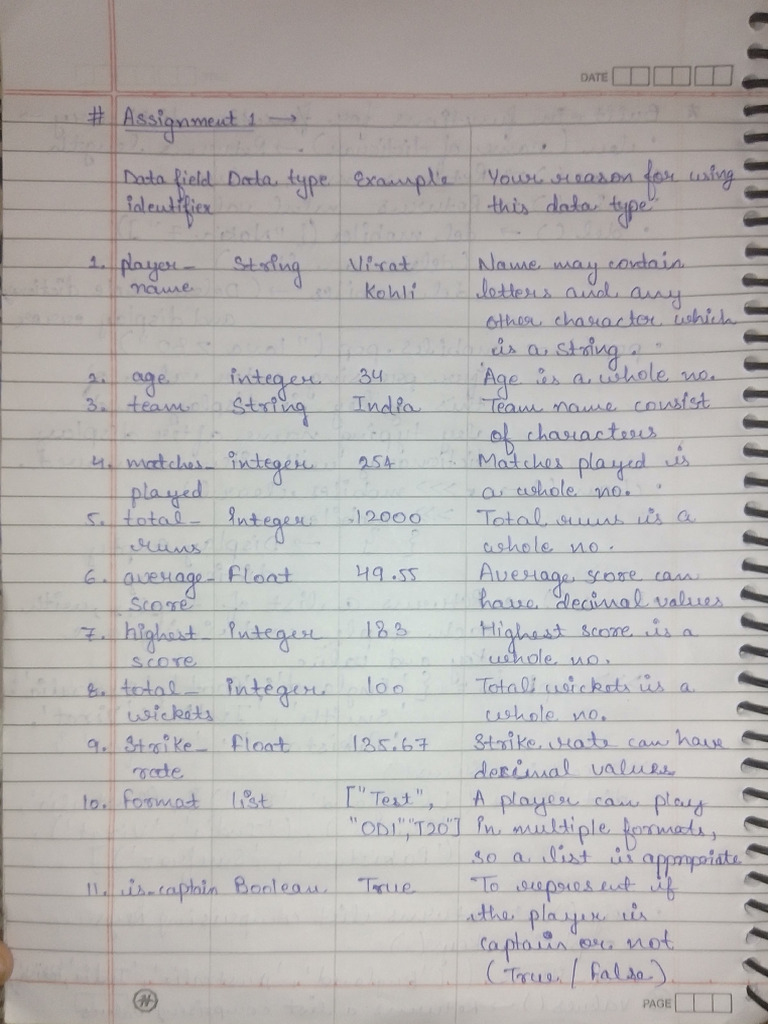 DATE
# Assignment 1 →
Data field Data type Example Your reason for using
identifier this data type
1. player_ String Virat Name may contain
name Kohli letters and any
other character which
is a string.
2. age integer 34 Age is a whole no.
3. team String India Team name consist
of characters
4. matches_ integer 254 Matches played is
played a whole no.
5. total_ Integer 12000 Total runs is a
runs whole no.
6. average_ Float 49.55 Average score can
score have decimal values
7. highest_ Integer 183 Highest score is a
score whole no.
8. total_ integer 100 Total wickets is a
wickets whole no.
9. Strike_ Float 135.67 Strike rate can have
rate decimal values
10. format list ["Test", A player can play
"ODI","T20"] in multiple formats,
so a list is appropiate
11. is_captin Boolean True To represent if
the player is
captain or not
(True / False)
# PAGE